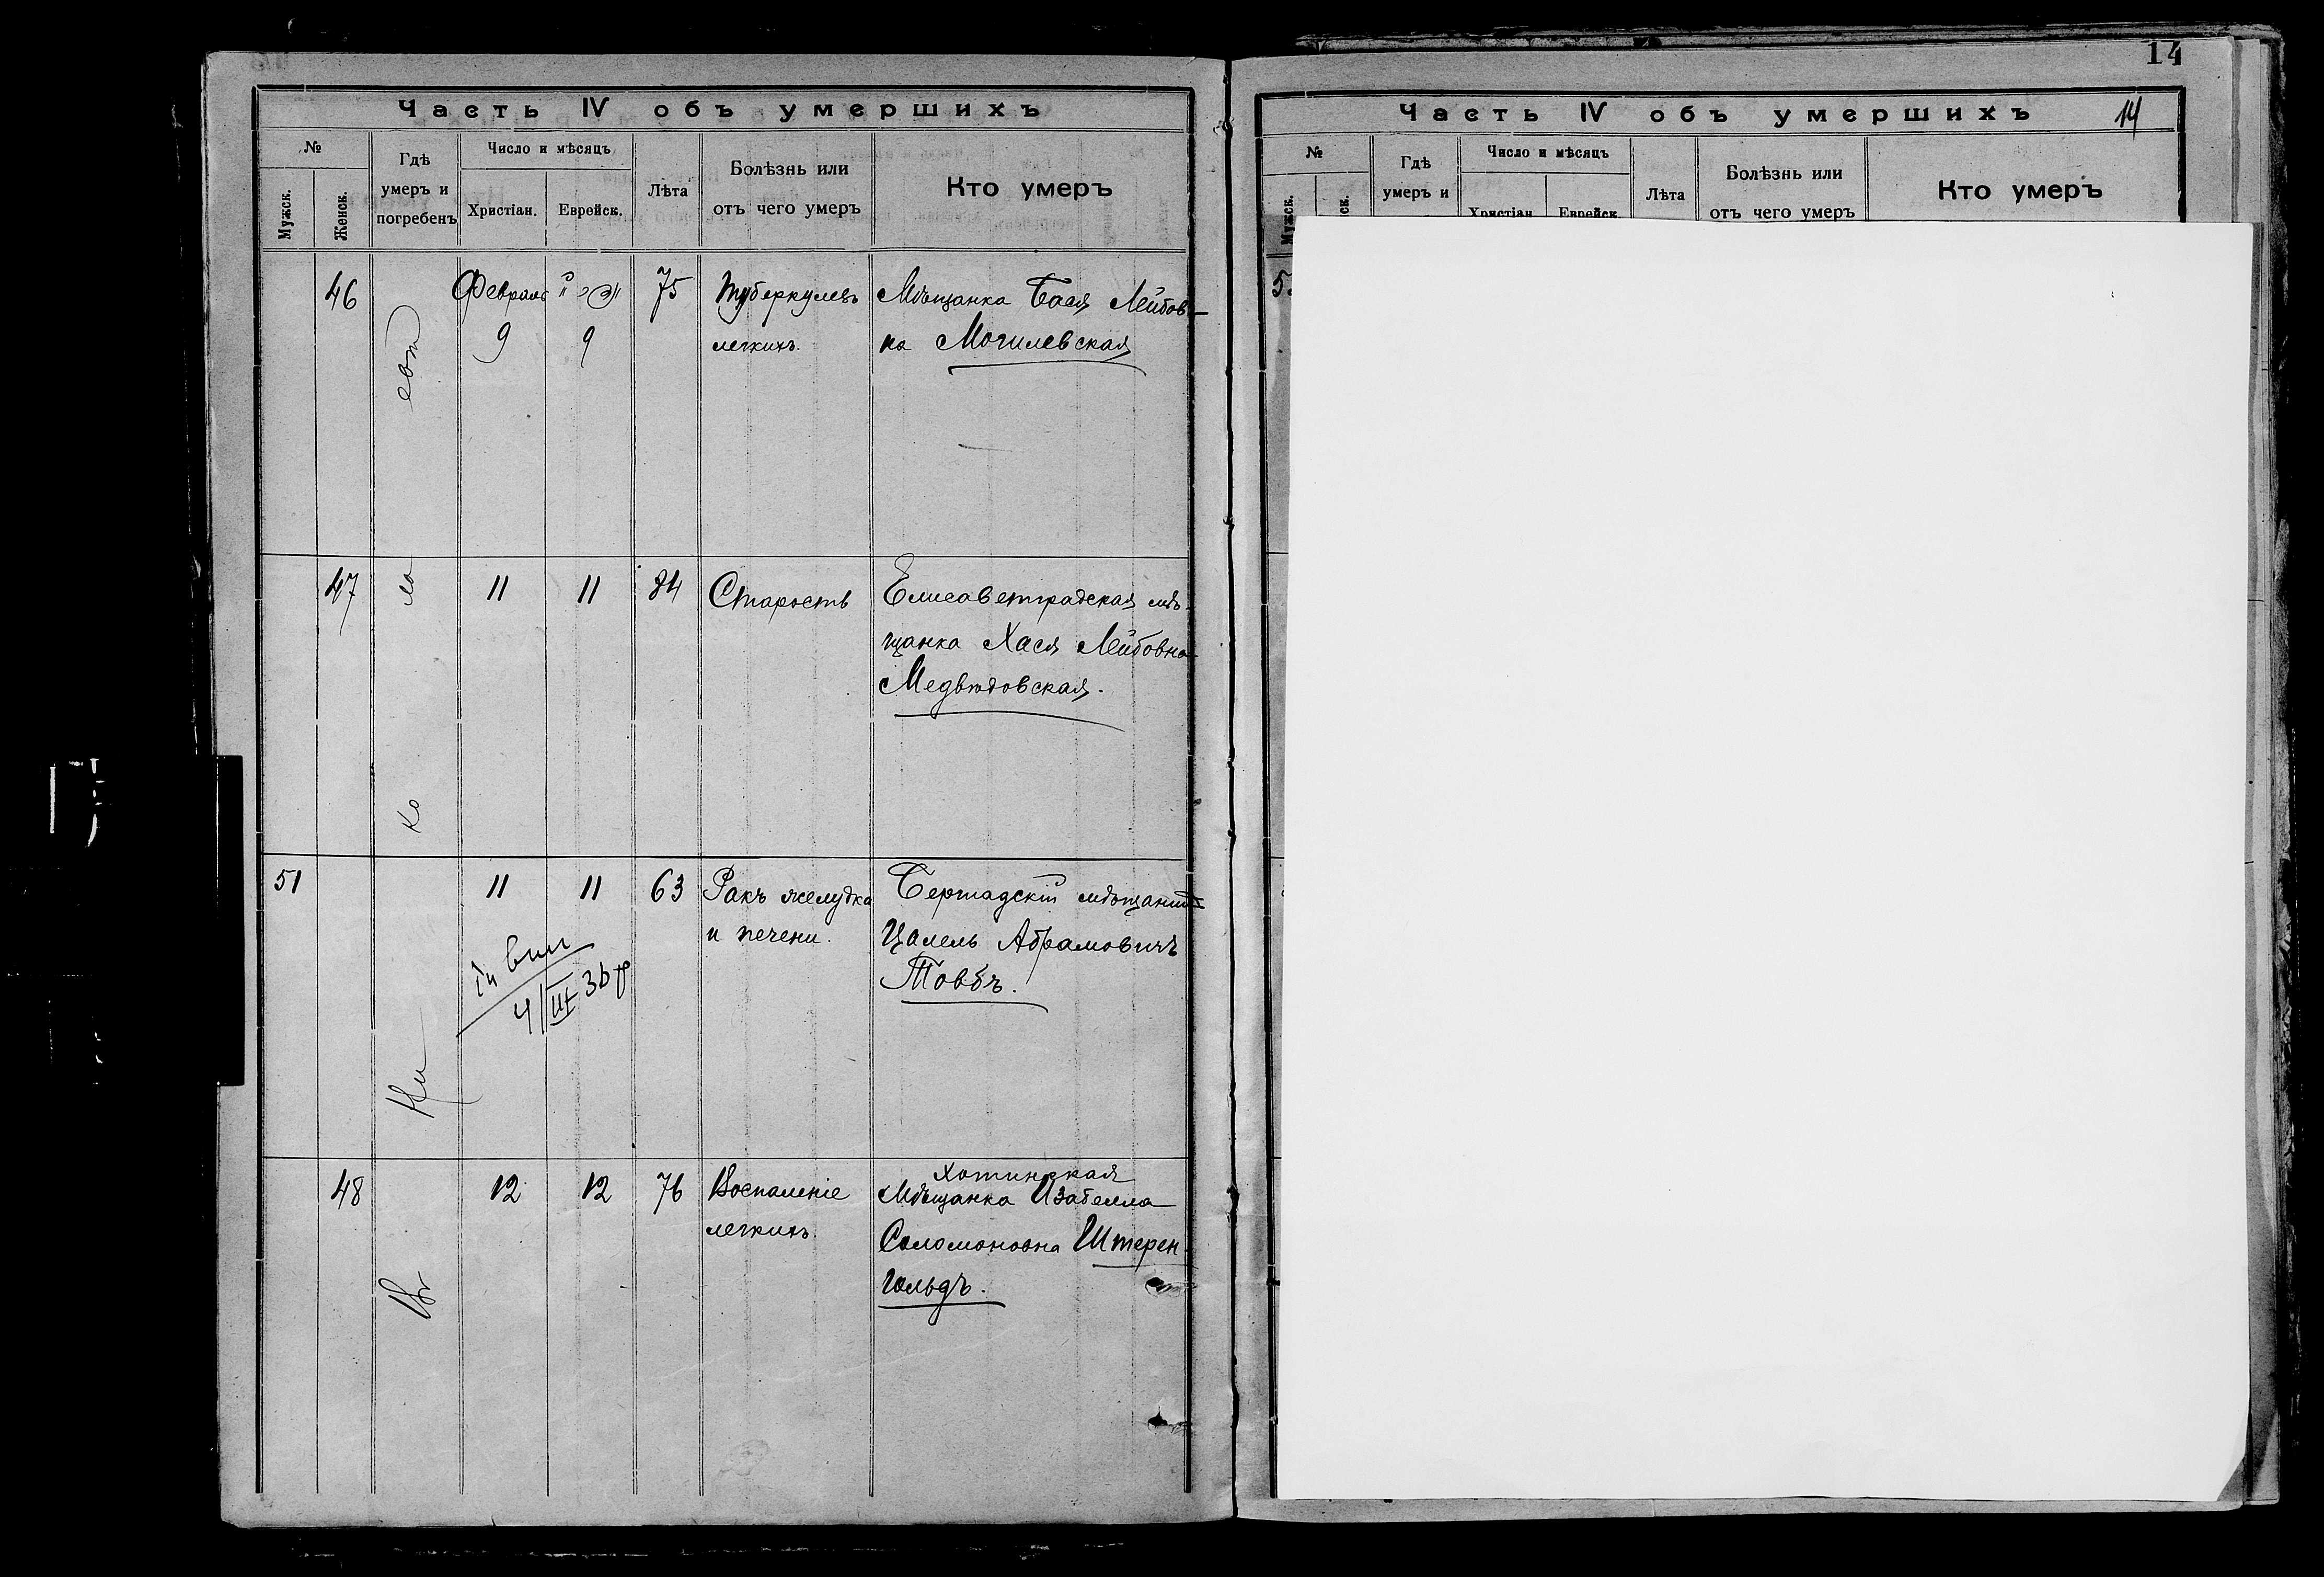 14
Часть IV объ умершихъ
№
Мужск.
Женск.
Гдѣ
умеръ и
погребенъ
Число и мѣсяцъ
Христіан.
Еврейск.
Лѣта
Болѣзнь или
отъ чего умеръ
Кто умеръ
46
Февраль
9
9
75
Туберкулезъ
легкихъ.
Мѣщанка Бася Лейбов-
на Могилевская
47
11
11
84
Старость
Елисаветградская мѣ-
щанка Хася Лейбовна
Медвѣдовская.
51
11
11
63
Ракъ желудка
и печени.
Бершадскій мѣщанинъ
Цалель Абрамовичъ
Товбъ.
48
12
12
76
Воспаленіе
легкихъ.
Хотинская
Мѣщанка Изабелла
Соломоновна Штерен-
гольдъ.
Въ Ни ко ла евѣ
Часть IV объ умершихъ
14
№
Мужск.
ск.
Гдѣ
умеръ и
Число и мѣсяцъ
Христіан.
Еврейск.
Лѣта
Болѣзнь или
отъ чего умеръ
Кто умеръ